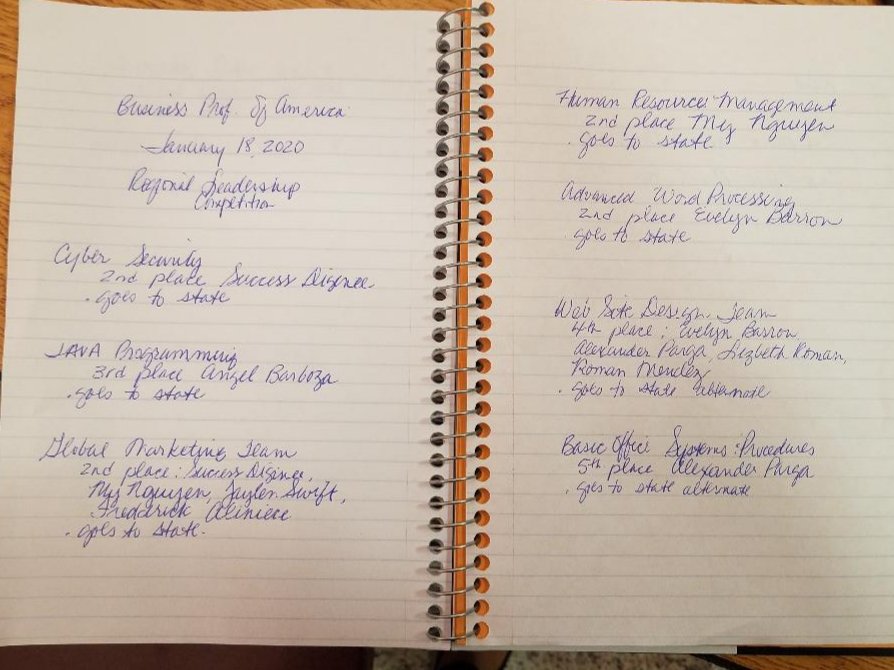 Business Prof. Of America
January 18, 2020
Regional Leadership
Competition
Cyber Security
2nd place Success Digence
. goes to state
JAVA Programming
3rd place Angel Barboza
. goes to state
Global Marketing Team
2nd place : Success Digence,
My Nguyen, Jaylen Swift,
Frederick
. goes to state.
Human Resource Management
2nd place My Nguyen
. goes to state
Advanced Word Processing
2nd place Evelyn Barron
. goes to state
Web Site Design Team
4th place : Evelyn Barron,
Alexander Parga, Lizbeth Roman,
Roman Mendez
. goes to state alternate
Basic Office Systems & Procedures
5th place Alexander Parga
. goes to state alternate